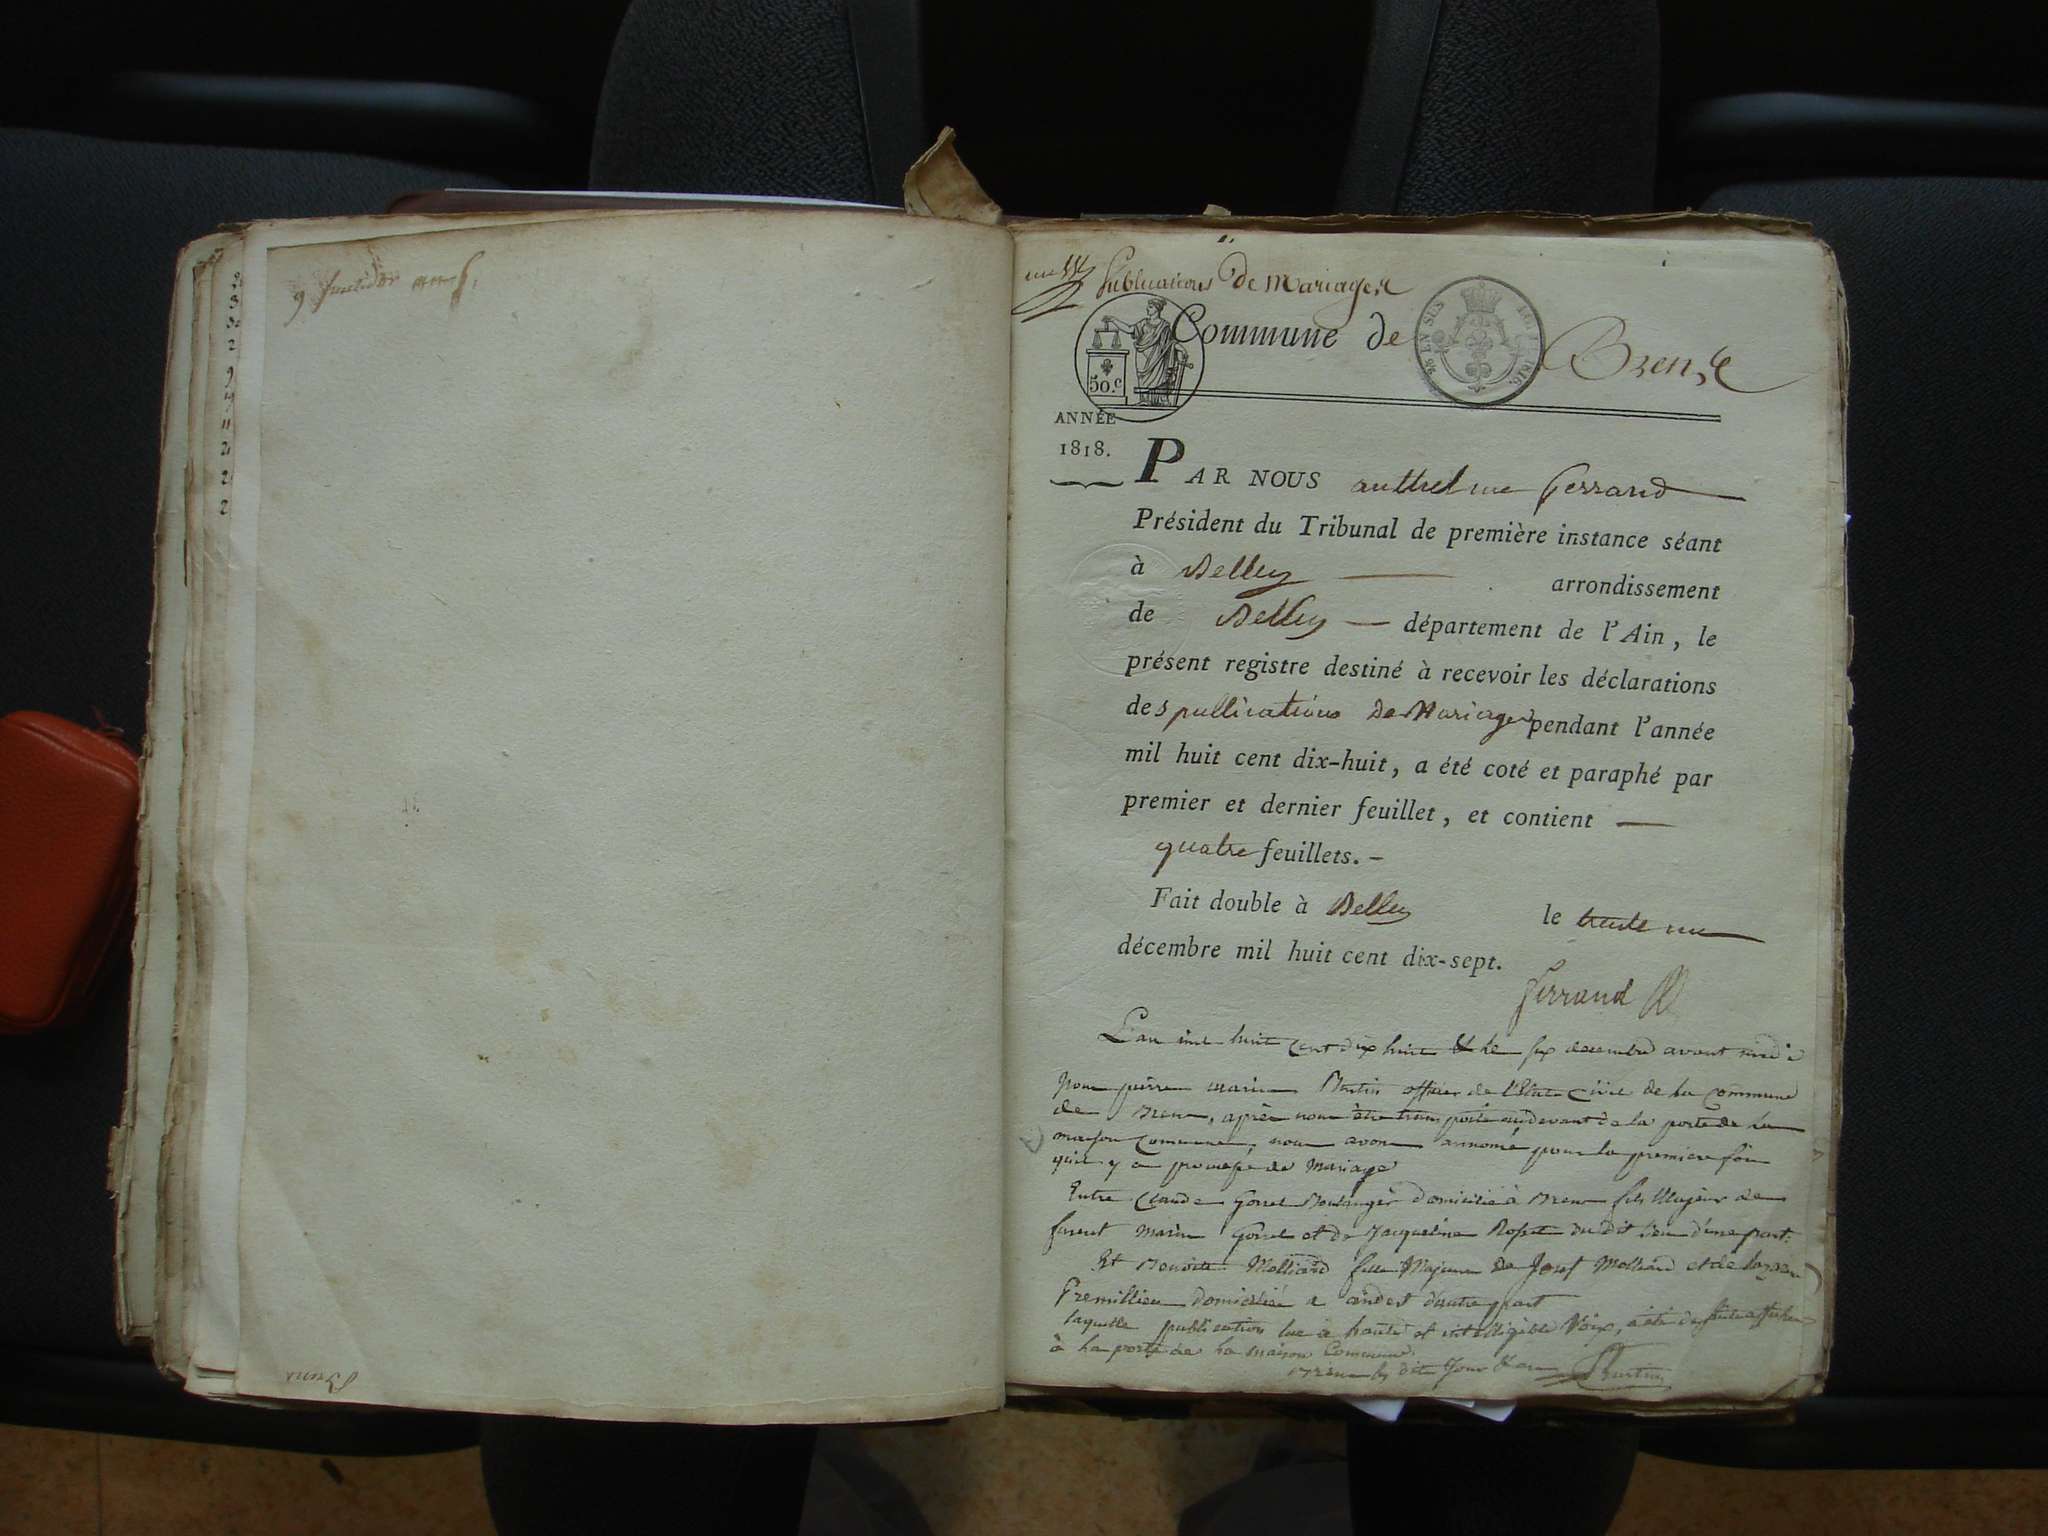 Publications de Mariage
Commune de Brens
50 c
ANNÉE
1818.
PAR NOUS anthelme Ferrand
Président du Tribunal de première instance séant
à Belley arrondissement
de Belley département de l'Ain, le
présent registre destiné à recevoir les déclarations
des publications de Mariages pendant l'année
mil huit cent dix-huit, a été coté et paraphé par
premier et dernier feuillet, et contient
quatre feuillets.
Fait double à Belley le trente un
décembre mil huit cent dix-sept.
Ferrand
L'an mil huit cent dix huit & le six decembre avant midi
Nous pierre marie Burtin officier de l'Etat Civil de la commune
de Brens, après nous être transporté au devant de la porte de la
maison Commune, nous avons annoncé pour la premiere fois
qu'il y a promesse de Mariage
Entre Claude Gorrel Boulanger domicilié à Brens fils Majeur de
Marin Gorrel et de Jacqueline du dit lieu d'une part.
Et Benoite Molliard fille Majeure de Josef Molliard et de
Premillieu domiciliée a andert d'autre part
laquelle publication lue a haute et intelligible Voix, a été de suite affichée
à la porte de la Maison Commune.
Brens les dits Jour & an Burtin